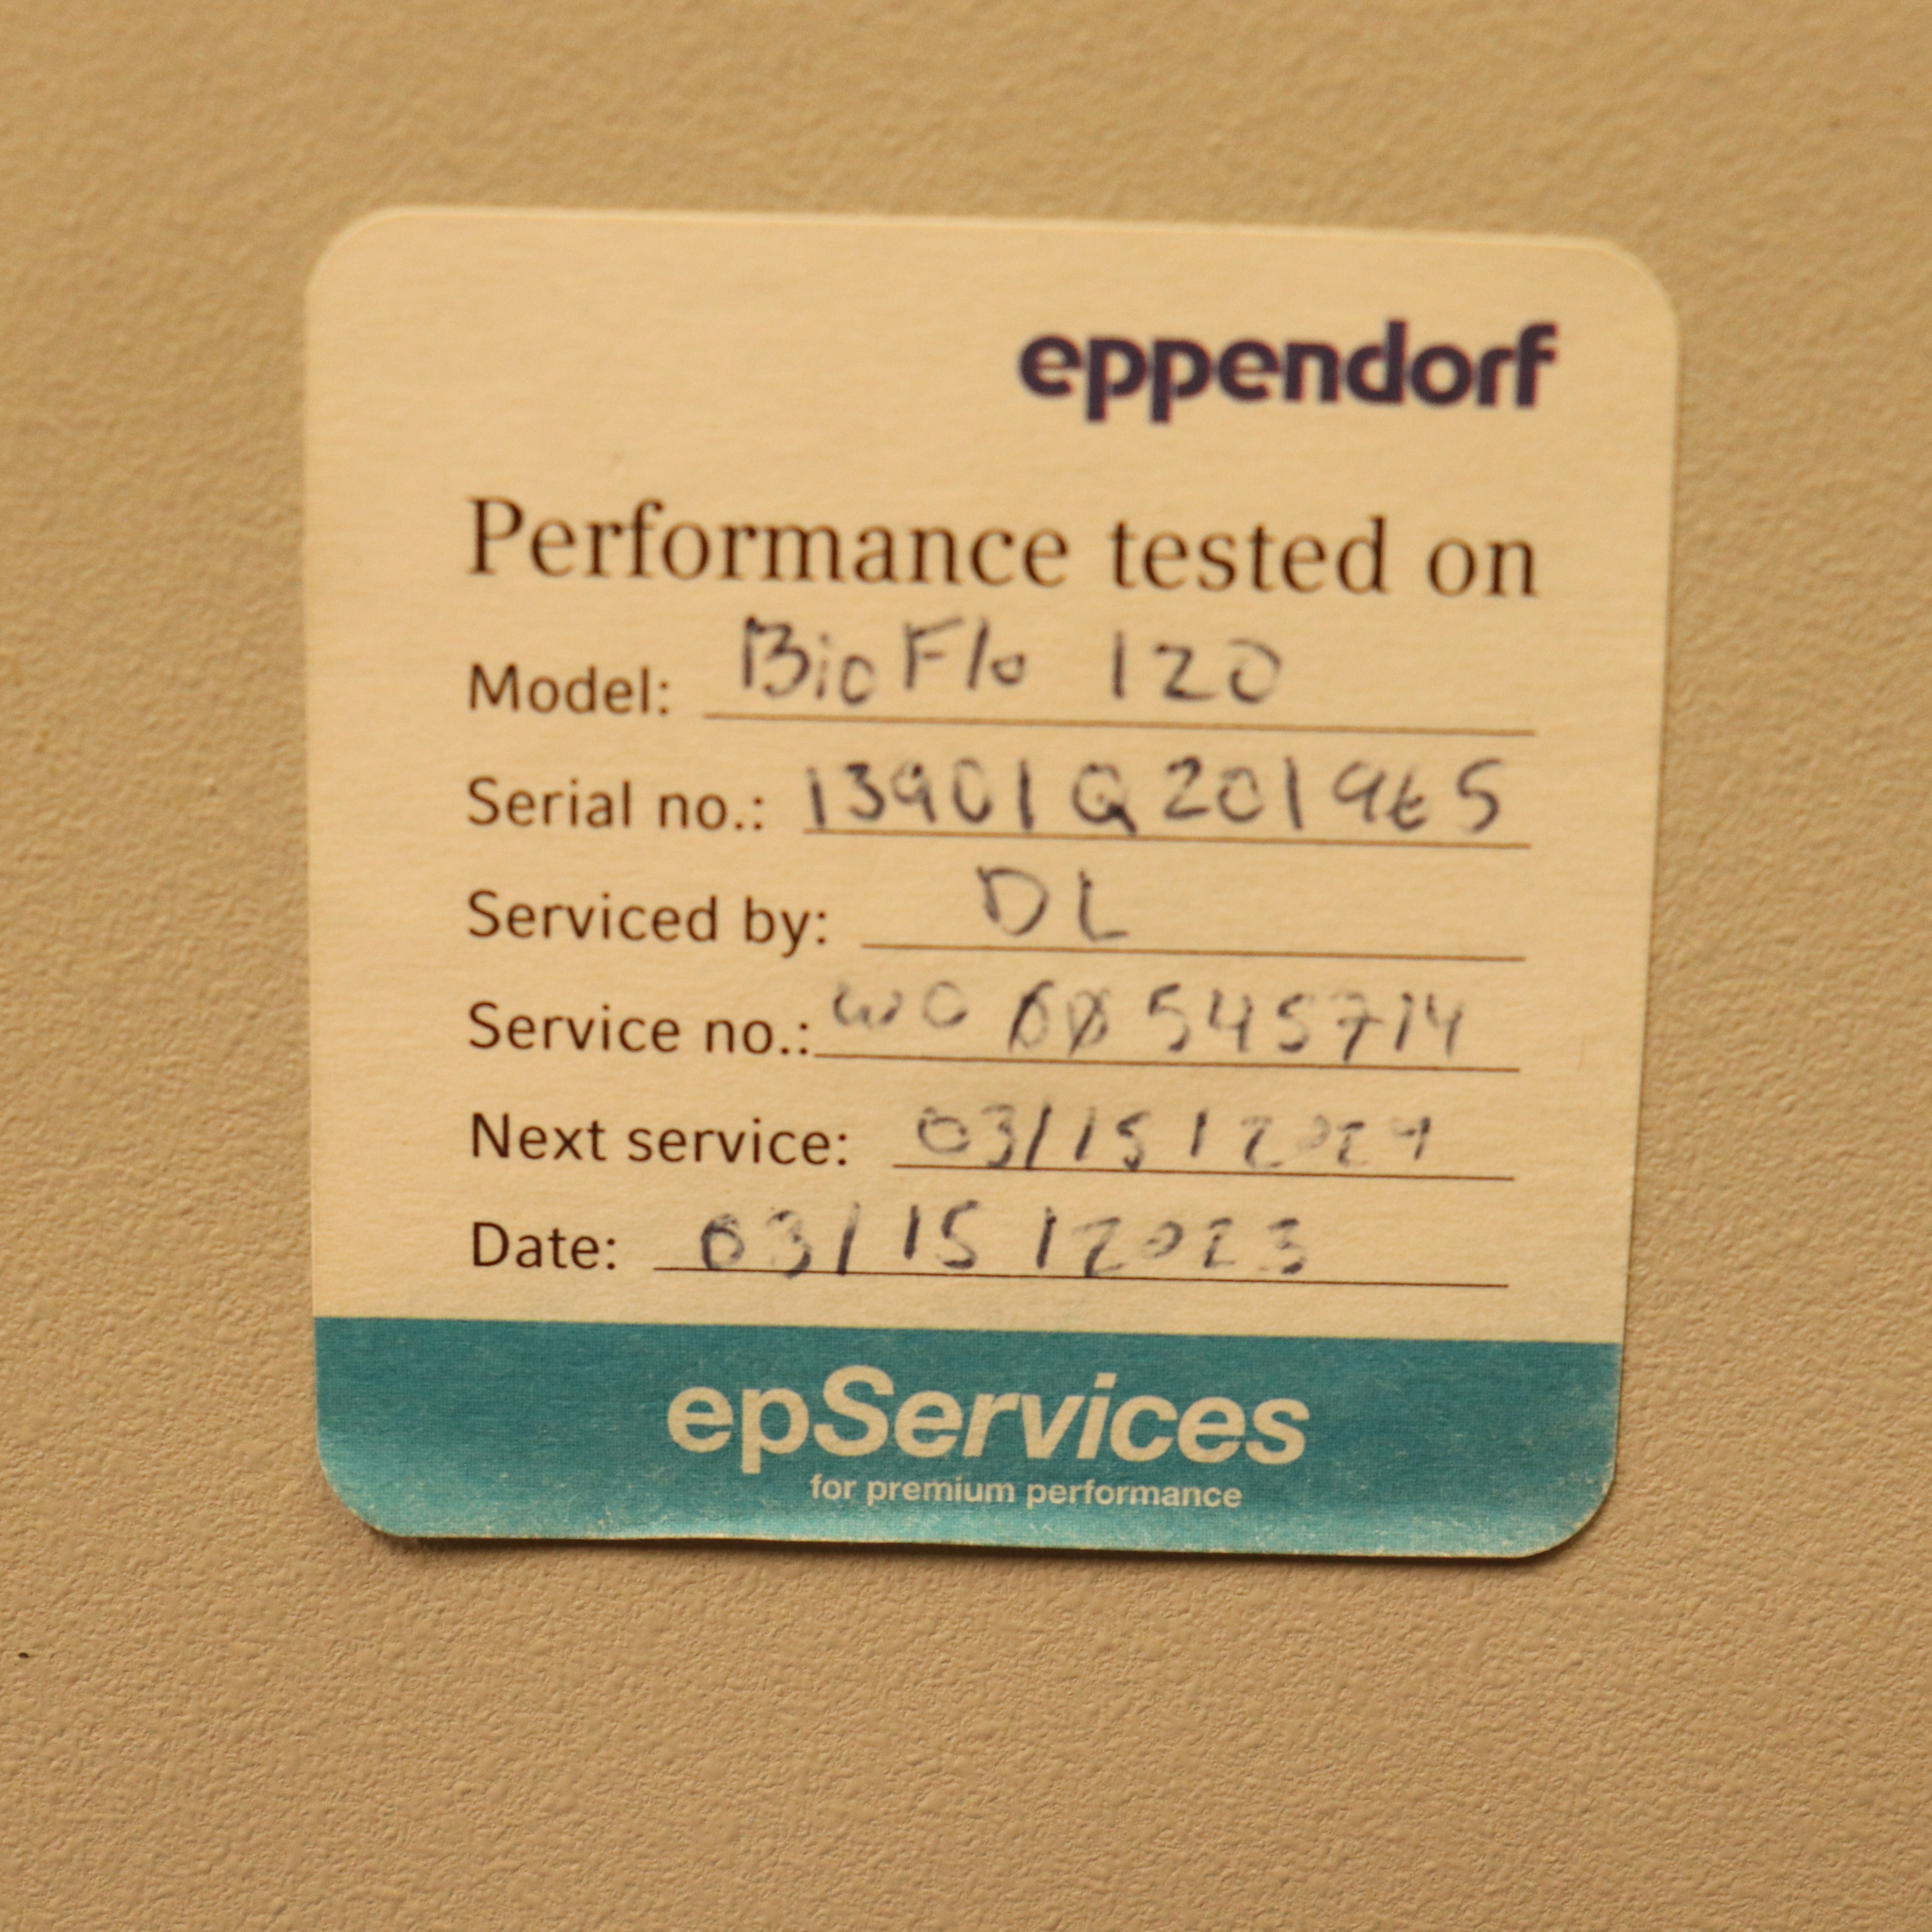 eppendorf
Performance tested on
Model: BioFlo 120
Serial no.: 13901Q201965
Serviced by: DL
Service no.: WO 00545714
Next service: 03/15/2024
Date: 03/15/2023
epServices
for premium performance